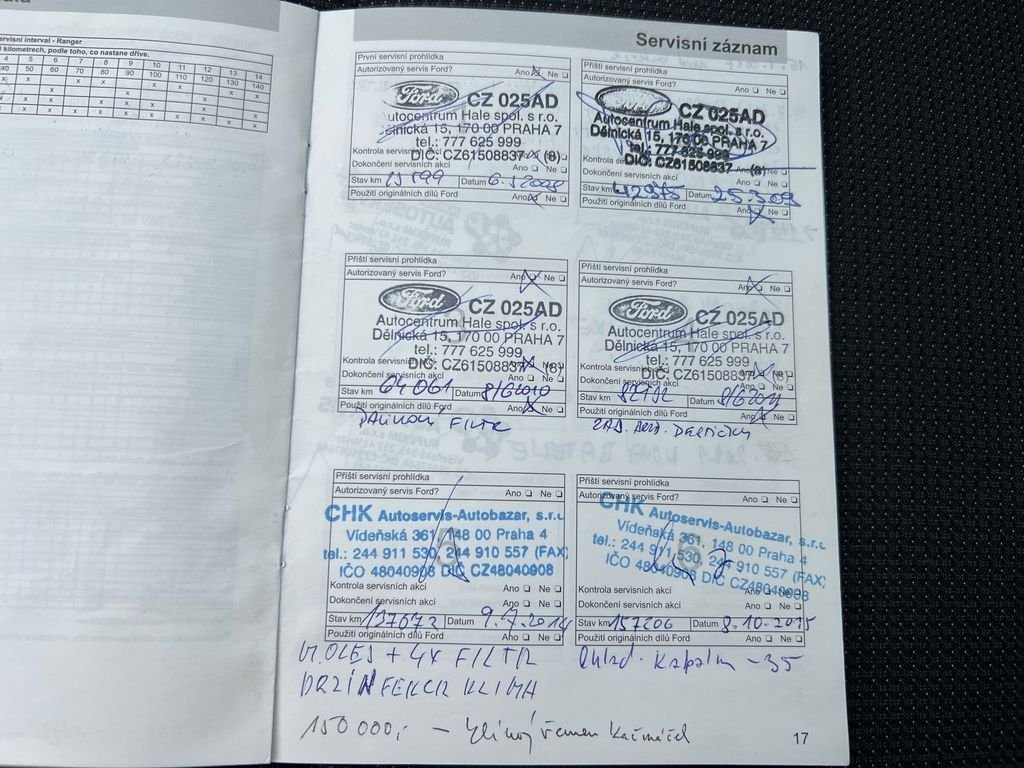 ervisní interval - Ranger
kilometrech, podle toho, co nastane dříve.
4 5 6 7 8 9 10 11 12 13 14
40 50 60 70 80 90 100 110 120 130 140
Servisní záznam
První servisní prohlídka
Autorizovaný servis Ford? Ano Ne
Ford CZ 025AD
Autocentrum Hale spol. s r.o.
Dělnická 15, 170 00 PRAHA 7
tel.: 777 625 999
Kontrola servisních DIČ: CZ61508837 (8)
Dokončení servisních akcí
Stav km Datum
Použití originálních dílů Ford Ano Ne
Příští servisní prohlídka
Autorizovaný servis Ford? Ano Ne
CZ 025AD
Autocentrum Hale spol. s r.o.
Dělnická 15, 170 00 PRAHA 7
tel.: 777 625 999
Kontrola DIČ: CZ61508837 (8) Ne
Dokončení servisních akcí Ano Ne
Stav km 42975 Datum 25.3.09
Použití originálních dílů Ford Ano Ne
Příští servisní prohlídka
Autorizovaný servis Ford? Ano Ne
Ford CZ 025AD
Autocentrum Hale spol. s r.o.
Dělnická 15, 170 00 PRAHA 7
tel.: 777 625 999
Kontrola servisních DIČ: CZ61508837 (8)
Dokončení servisních akcí Ano Ne
Stav km 64061 Datum 8/6 2010
Použití originálních dílů Ford Ano Ne
PALIVOVÝ FILTR
Příští servisní prohlídka
Autorizovaný servis Ford? Ano Ne
Ford CZ 025AD
Autocentrum Hale spol. s r.o.
Dělnická 15, 170 00 PRAHA 7
tel.: 777 625 999
Kontrola servisních DIČ: CZ61508837 (8)
Dokončení servisních akcí Ano Ne
Stav km Datum 8/6 2011
Použití originálních dílů Ford Ano Ne
ZAD. BRZD. DESTIČKY
Příští servisní prohlídka
Autorizovaný servis Ford? Ano Ne
CHK Autoservis-Autobazar, s.r.o.
Vídeňská 361, 148 00 Praha 4
tel.: 244 911 530, 244 910 557 (FAX)
IČO 48040908 DIČ CZ48040908
Kontrola servisních akcí Ano Ne
Dokončení servisních akcí Ano Ne
Stav km 137672 Datum 9.7.2014
Použití originálních dílů Ford Ano Ne
OLEJ + 4X FILTR
KLIMA
150 000,- – řemen
Příští servisní prohlídka
Autorizovaný servis Ford? Ano Ne
CHK Autoservis-Autobazar, s.r.o.
Vídeňská 361, 148 00 Praha 4
tel.: 244 911 530, 244 910 557 (FAX)
IČO 48040908 DIČ CZ48040908
Kontrola servisních akcí Ano Ne
Dokončení servisních akcí Ano Ne
Stav km 157206 Datum 8.10.2015
Použití originálních dílů Ford Ano Ne
Chlad. kapalin -35
17